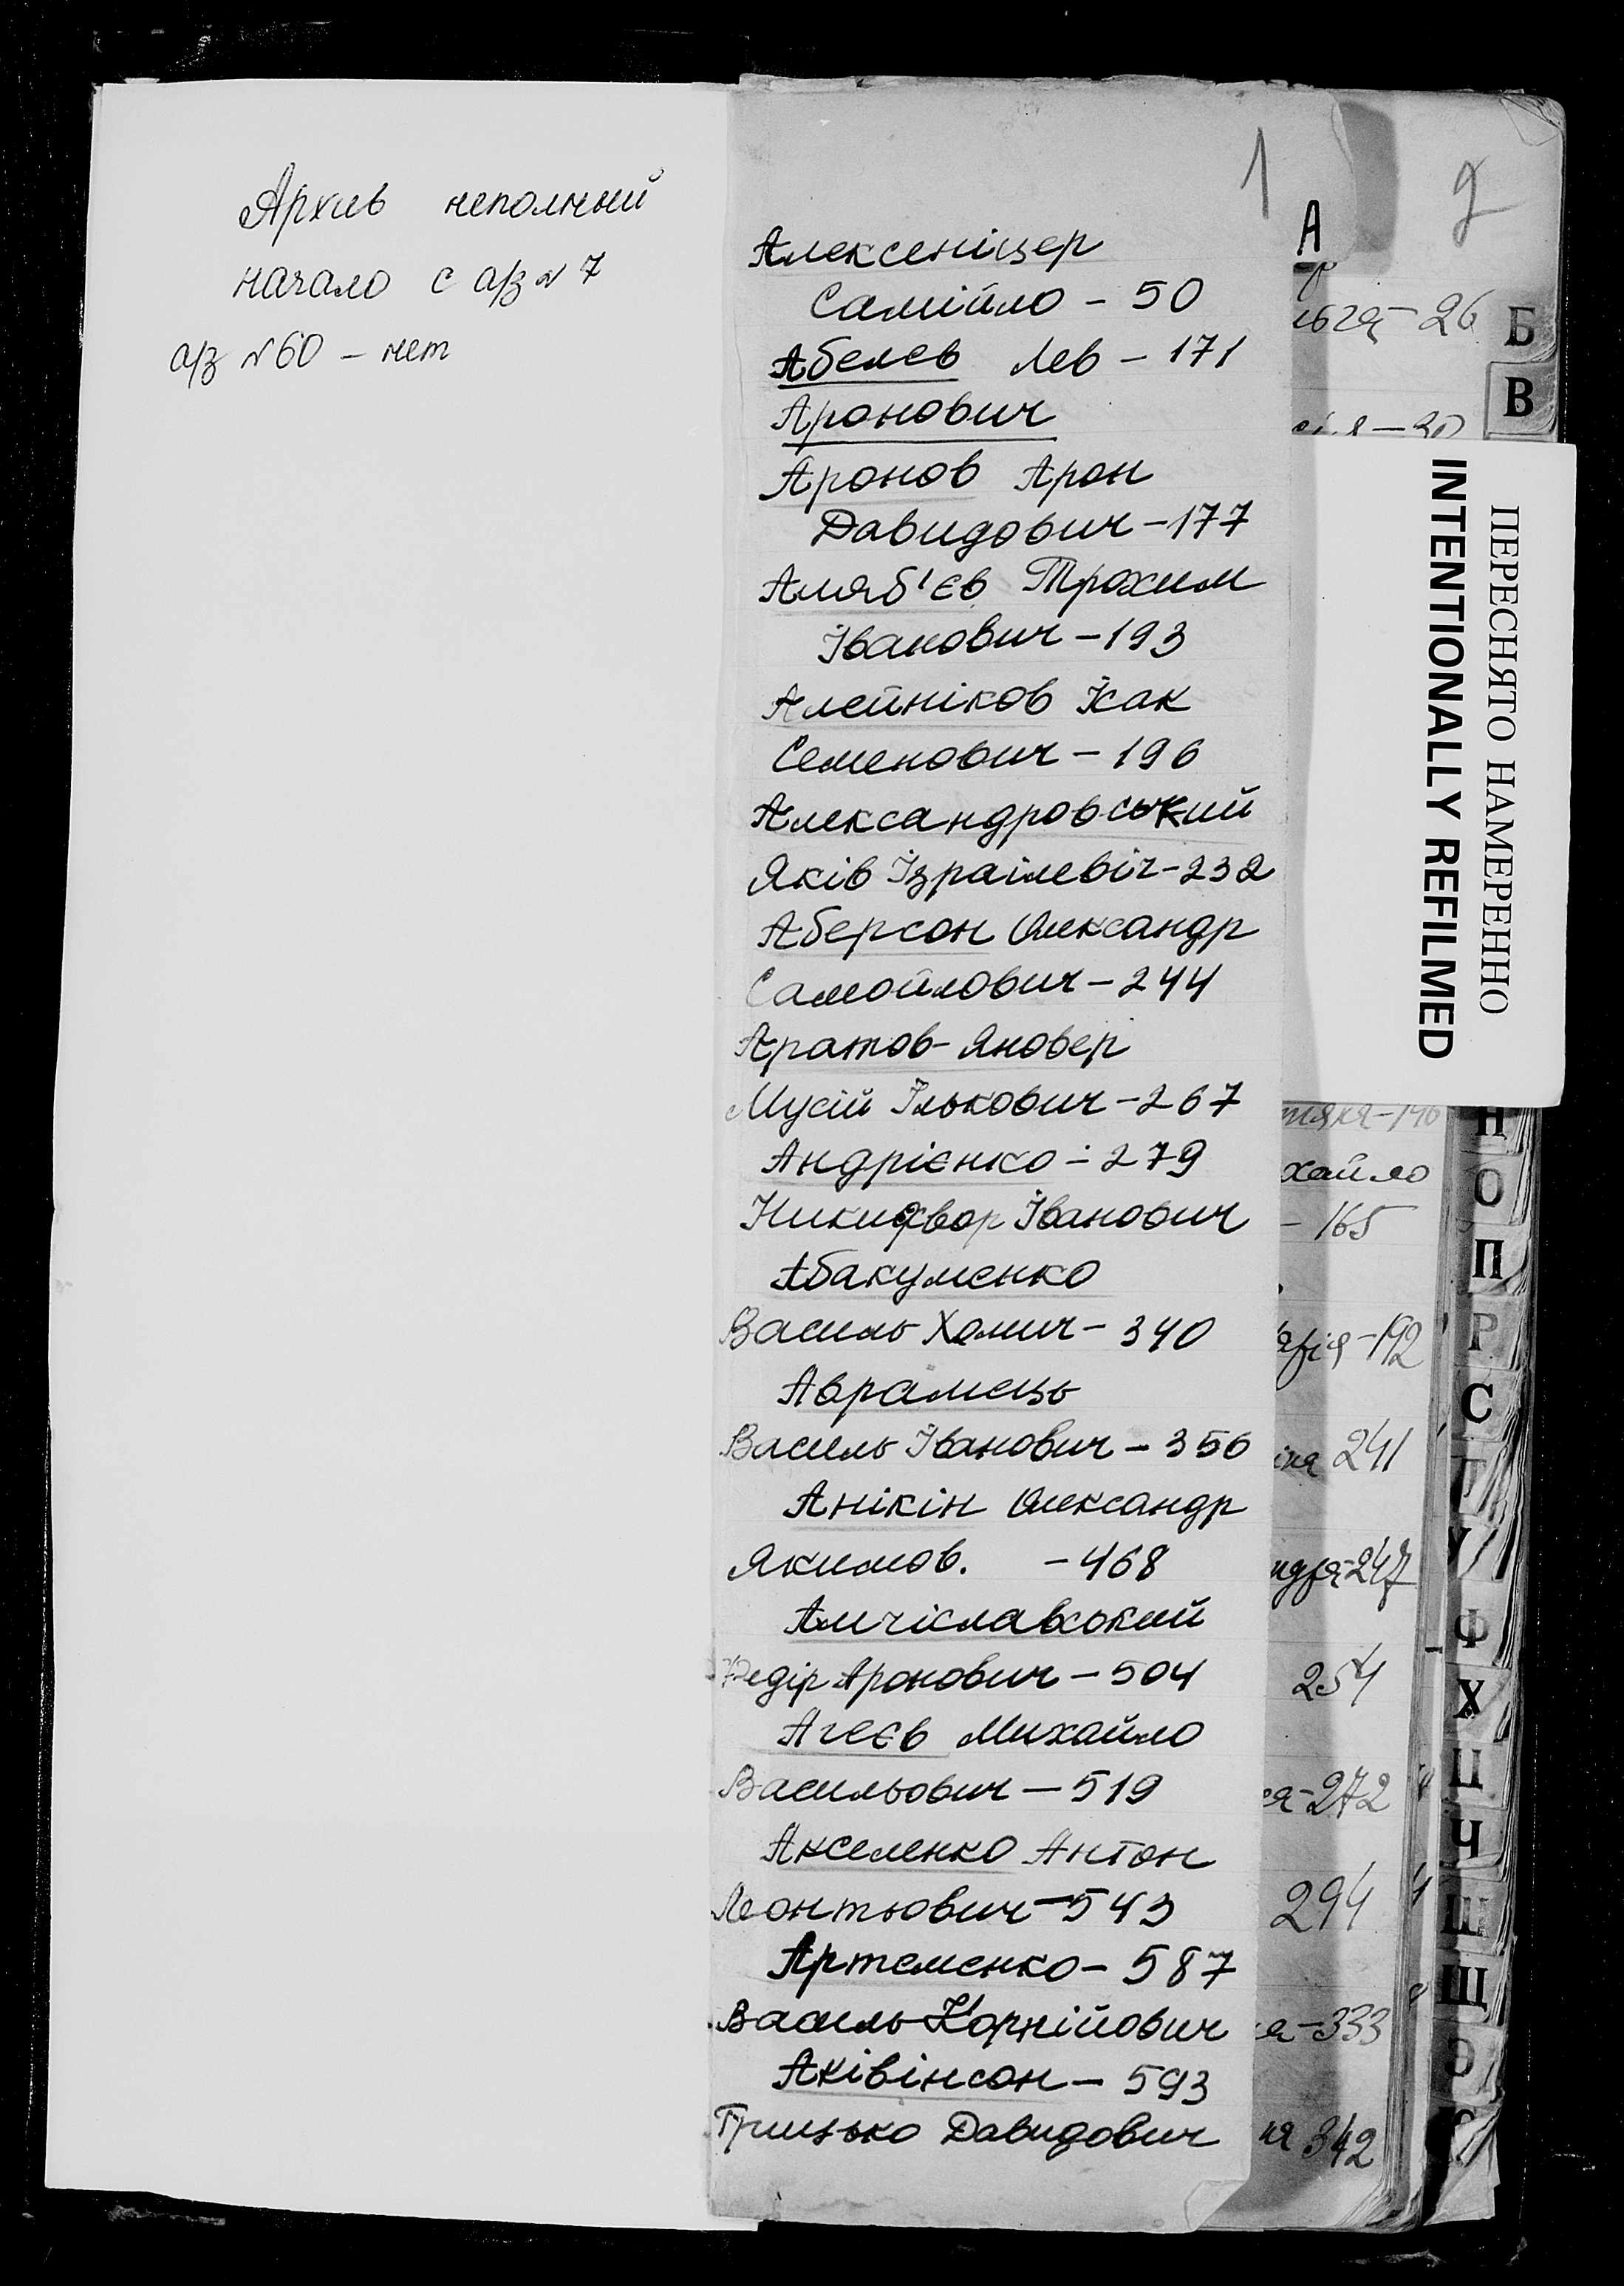 Архив неполный
начало с а/з № 7
а/з № 60 – нет
1
Алексеніцер
Самійло – 50
Абелев Лев – 171
Аронович
Аронов Арон
Давидович – 177
Аляб'єв Трохим
Іванович – 193
Алейніков Ісак
Семенович – 196
Александровський
Яків Ізраілевіч – 232
Аберсон Олександр
Самойлович – 244
Аратов-Яновер
Мусій Ількович – 267
Андрієнко – 279
Никифор Іванович
Абакуменко
Василь Хомич – 340
Аврамець
Василь Іванович – 356
Анікін Олександр
Якимов. – 468
Амчіславський
Федір Аронович – 504
Агеєв Михайло
Васильович – 519
Акселенко Антон
Леонтьович – 543
Артеменко – 587
Василь Корнійович
Аківінсон – 593
Грицько Давидович
2
А
– 26
– 30
ПЕРЕСНЯТО НАМЕРЕННО
INTENTIONALLY REFILMED
– 146
хайло
– 165
– 192
241
– 247
254
– 272
294
– 333
342
Б
В
Н
О
П
Р
С
Т
У
Ф
Х
Ц
Ч
Ш
Щ
Э